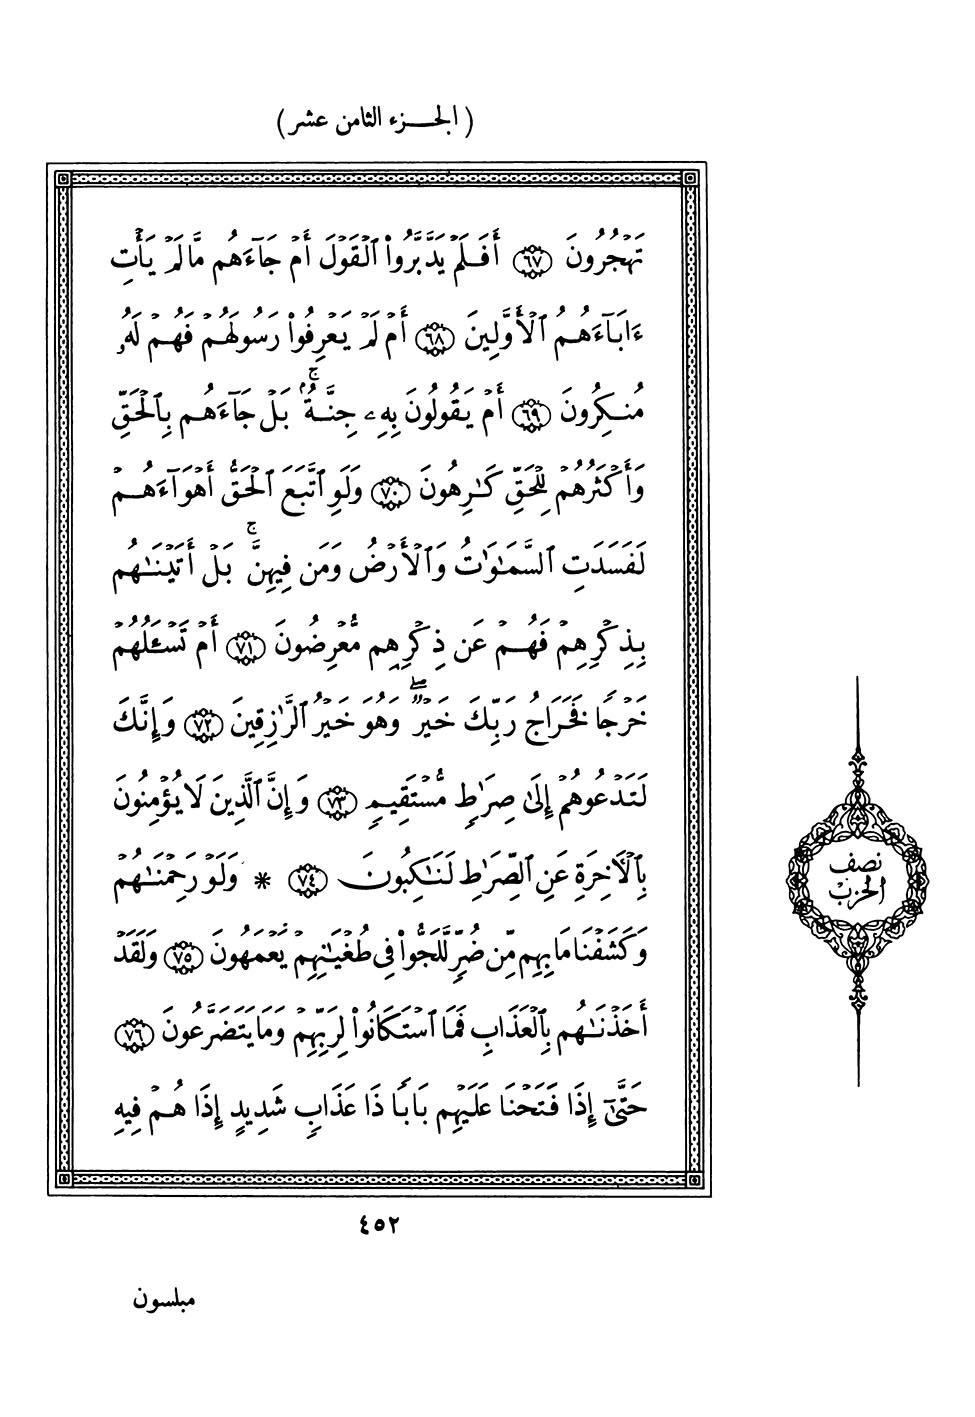 (الجـــزء الثامن عشر)
تَهْجُرُونَ ۝٦٧ أَفَلَمْ يَدَّبَّرُواْ ٱلْقَوْلَ أَمْ جَآءَهُم مَّا لَمْ يَأْتِ
ءَابَآءَهُمُ ٱلْأَوَّلِينَ ۝٦٨ أَمْ لَمْ يَعْرِفُواْ رَسُولَهُمْ فَهُمْ لَهُۥ
مُنكِرُونَ ۝٦٩ أَمْ يَقُولُونَ بِهِۦ جِنَّةُۢ ۚ بَلْ جَآءَهُم بِٱلْحَقِّ
وَأَكْثَرُهُمْ لِلْحَقِّ كَـٰرِهُونَ ۝٧٠ وَلَوِ ٱتَّبَعَ ٱلْحَقُّ أَهْوَآءَهُمْ
لَفَسَدَتِ ٱلسَّمَـٰوَٰتُ وَٱلْأَرْضُ وَمَن فِيهِنَّ ۚ بَلْ أَتَيْنَـٰهُم
بِذِكْرِهِمْ فَهُمْ عَن ذِكْرِهِم مُّعْرِضُونَ ۝٧١ أَمْ تَسْـَٔلُهُمْ
خَرْجًا فَخَرَاجُ رَبِّكَ خَيْرٌ ۖ وَهُوَ خَيْرُ ٱلرَّٰزِقِينَ ۝٧٢ وَإِنَّكَ
لَتَدْعُوهُمْ إِلَىٰ صِرَٰطٍ مُّسْتَقِيمٍ ۝٧٣ وَإِنَّ ٱلَّذِينَ لَا يُؤْمِنُونَ
بِٱلْأَخِرَةِ عَنِ ٱلصِّرَٰطِ لَنَـٰكِبُونَ ۝٧٤ * وَلَوْ رَحِمْنَـٰهُمْ
وَكَشَفْنَا مَا بِهِم مِّن ضُرٍّ لَّلَجُّواْ فِى طُغْيَـٰنِهِمْ يَعْمَهُونَ ۝٧٥ وَلَقَدْ
أَخَذْنَـٰهُم بِٱلْعَذَابِ فَمَا ٱسْتَكَانُواْ لِرَبِّهِمْ وَمَا يَتَضَرَّعُونَ ۝٧٦
حَتَّىٰٓ إِذَا فَتَحْنَا عَلَيْهِم بَابًا ذَا عَذَابٍ شَدِيدٍ إِذَا هُمْ فِيهِ
نصف
الحزب
٤٥٢
مبلسون